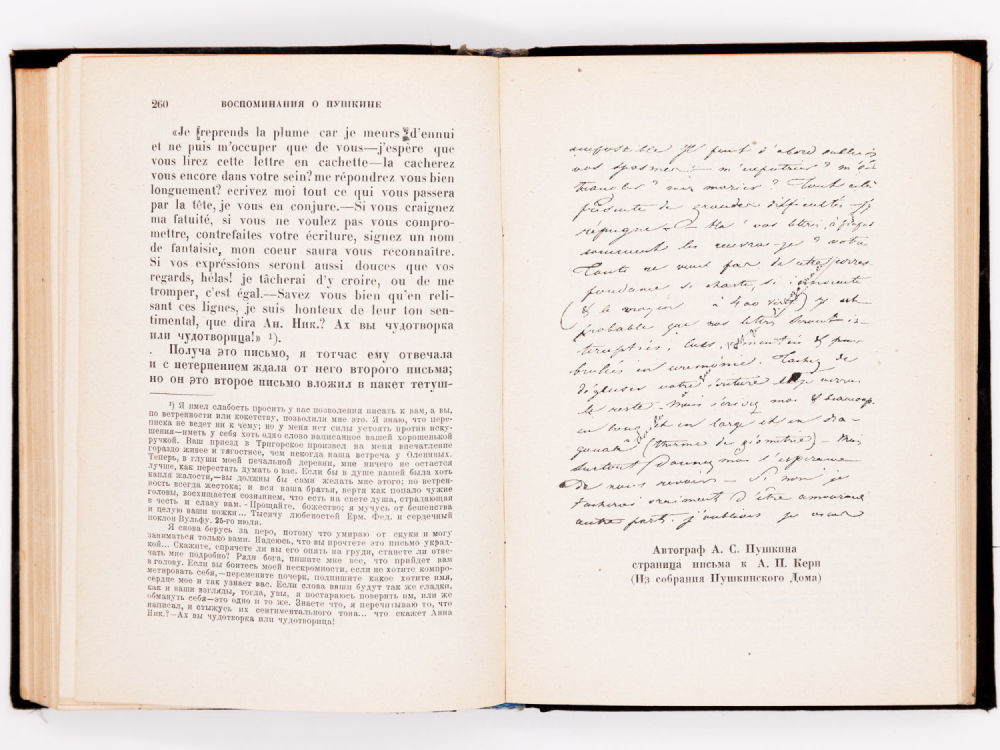 260 ВОСПОМИНАНИЯ О ПУШКИНЕ
«Je reprends la plume car je meurs d'ennui
et ne puis m'occuper que de vous—j'espère que
vous lirez cette lettre en cachette—la cacherez
vous encore dans votre sein? me répondrez vous bien
longuement? ecrivez moi tout ce qui vous passera
par la tête, je vous en conjure.—Si vous craignez
ma fatuité, si vous ne voulez pas vous compro-
mettre, contrefaites votre écriture, signez un nom
de fantaisie, mon coeur saura vous reconnaître.
Si vos expréssions seront aussi douces que vos
regards, hélas! je tâcherai d'y croire, ou de me
tromper, c'est égal.—Savez vous bien qu'en reli-
sant ces lignes, je suis honteux de leur ton sen-
timental, que dira Ан. Ник.? Ах вы чудотворка
или чудотворица!» ¹).
Получа это письмо, я тотчас ему отвечала
и с нетерпением ждала от него второго письма;
но он это второе письмо вложил в пакет тетуш-
¹) Я имел слабость просить у вас позволения писать к вам, а вы,
по ветренности или кокетству, позволили мне это. Я знаю, что пере-
писка не ведет ни к чему; но у меня нет силы устоять против иску-
шения—иметь у себя хоть одно слово написанное вашей хорошенькой
ручкой. Ваш приезд в Тригорское произвел на меня впечатление
гораздо живее и тягостнее, чем некогда ваша встреча у Олениных.
Теперь, в глуши моей печальной деревни, мне ничего не остается
лучше, как перестать думать о вас. Если бы в душе вашей была хоть
капля жалости,—вы должны бы сами желать мне этого; но ветрен-
ность всегда жестока; и вся ваша братья, вертя как попало чужие
головы, восхищается сознанием, что есть на свете душа, страдающая
в честь и славу вам. - Прощайте, божество; я мучусь от бешенства
и целую ваши ножки... Тысячу любезностей Ерм. Фед. и сердечный
поклон Вульфу. 25-го июля.
Я снова берусь за перо, потому что умираю от скуки и могу
заниматься только вами. Надеюсь, что вы прочтете это письмо украд-
кой... Скажите, спрячете ли вы его опять на груди, станете ли отве-
чать мне подробно? Ради бога, пишите мне все, что прийдет вам
в голову. Если вы боитесь моей нескромности, если не хотите компро-
метировать себя,—перемените почерк, подпишите какое хотите имя,
сердце мое и так узнает вас. Если слова ваши будут так же сладки,
как и ваши взгляды, тогда, увы, я постараюсь поверить им, или же
обмануть себя—это одно и то же. Знаете что, я перечитываю то, что
написал, и стыжусь их сентиментального тона... что скажет Анна
Ник.?—Ах вы чудотворка или чудотворица!
il faut d'abord
vos
Tout cela
présente de grandes difficultés
répugne vos lettres
votre
Tante ne veut pas de
pondance si chaste, si innocente
à 400
probable que nos lettres seront in-
votre écriture
le reste. Mais écrivez moi et beaucoup
en long et en large et en dia-
gonale (therme de géométrie) - Mais
surtout donnez moi l'espérance
de vous revoir - Si non je
tacherai vraiment d'être amoureux
autre part. j'oubliois
Автограф А. С. Пушкина
страница письма к А. П. Керн
(Из собрания Пушкинского Дома)